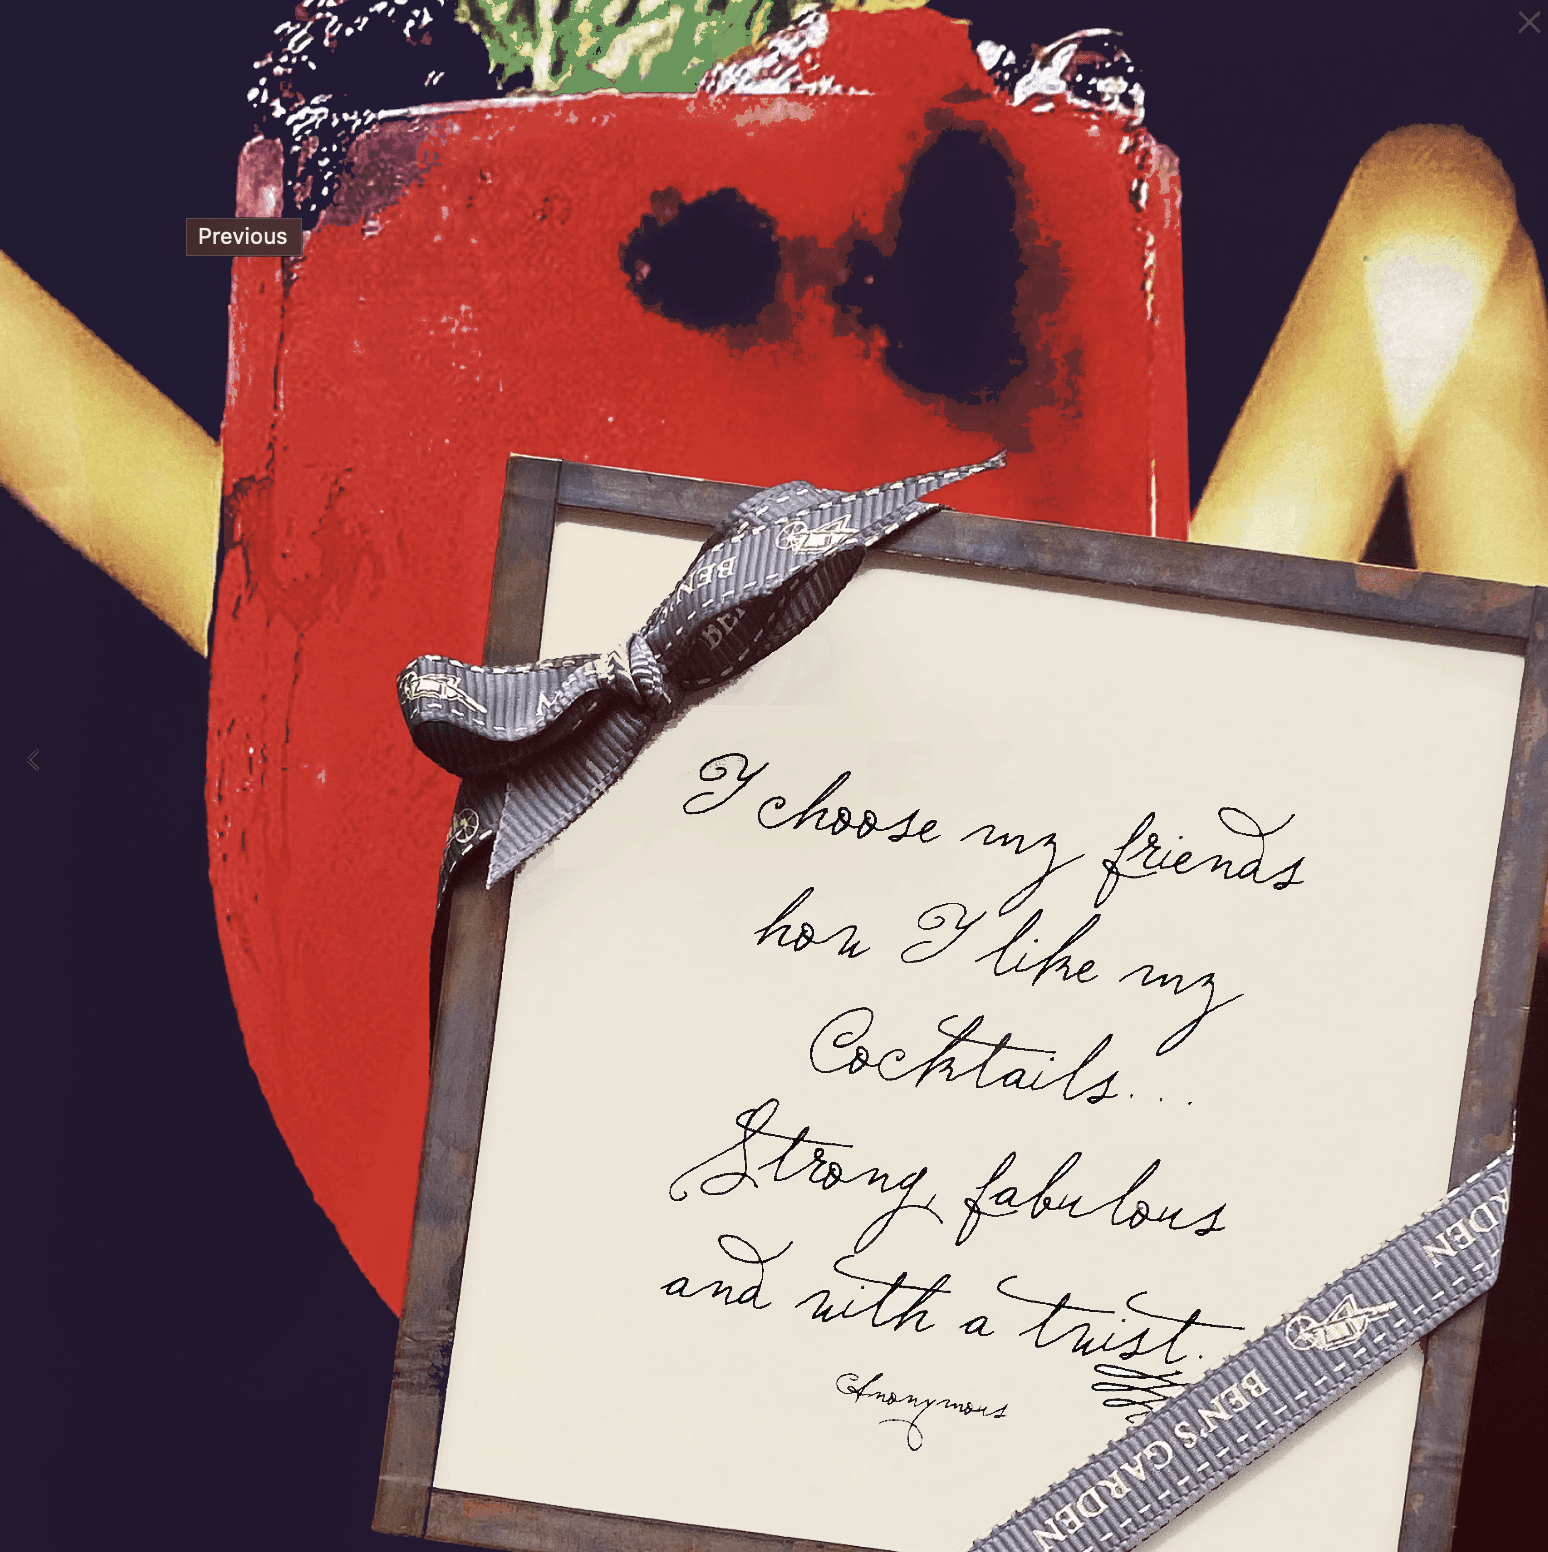 Previous
BEN'
BE
N
I choose my friends
how I like my
Cocktails...
Strong, fabulous
and with a twist.
Anonymous
RDEN
BEN'S GARDEN